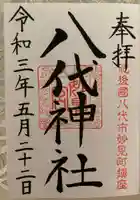 奉拝
肥後國八代市妙見町鎮座
八代神社
令和三年五月二十二日